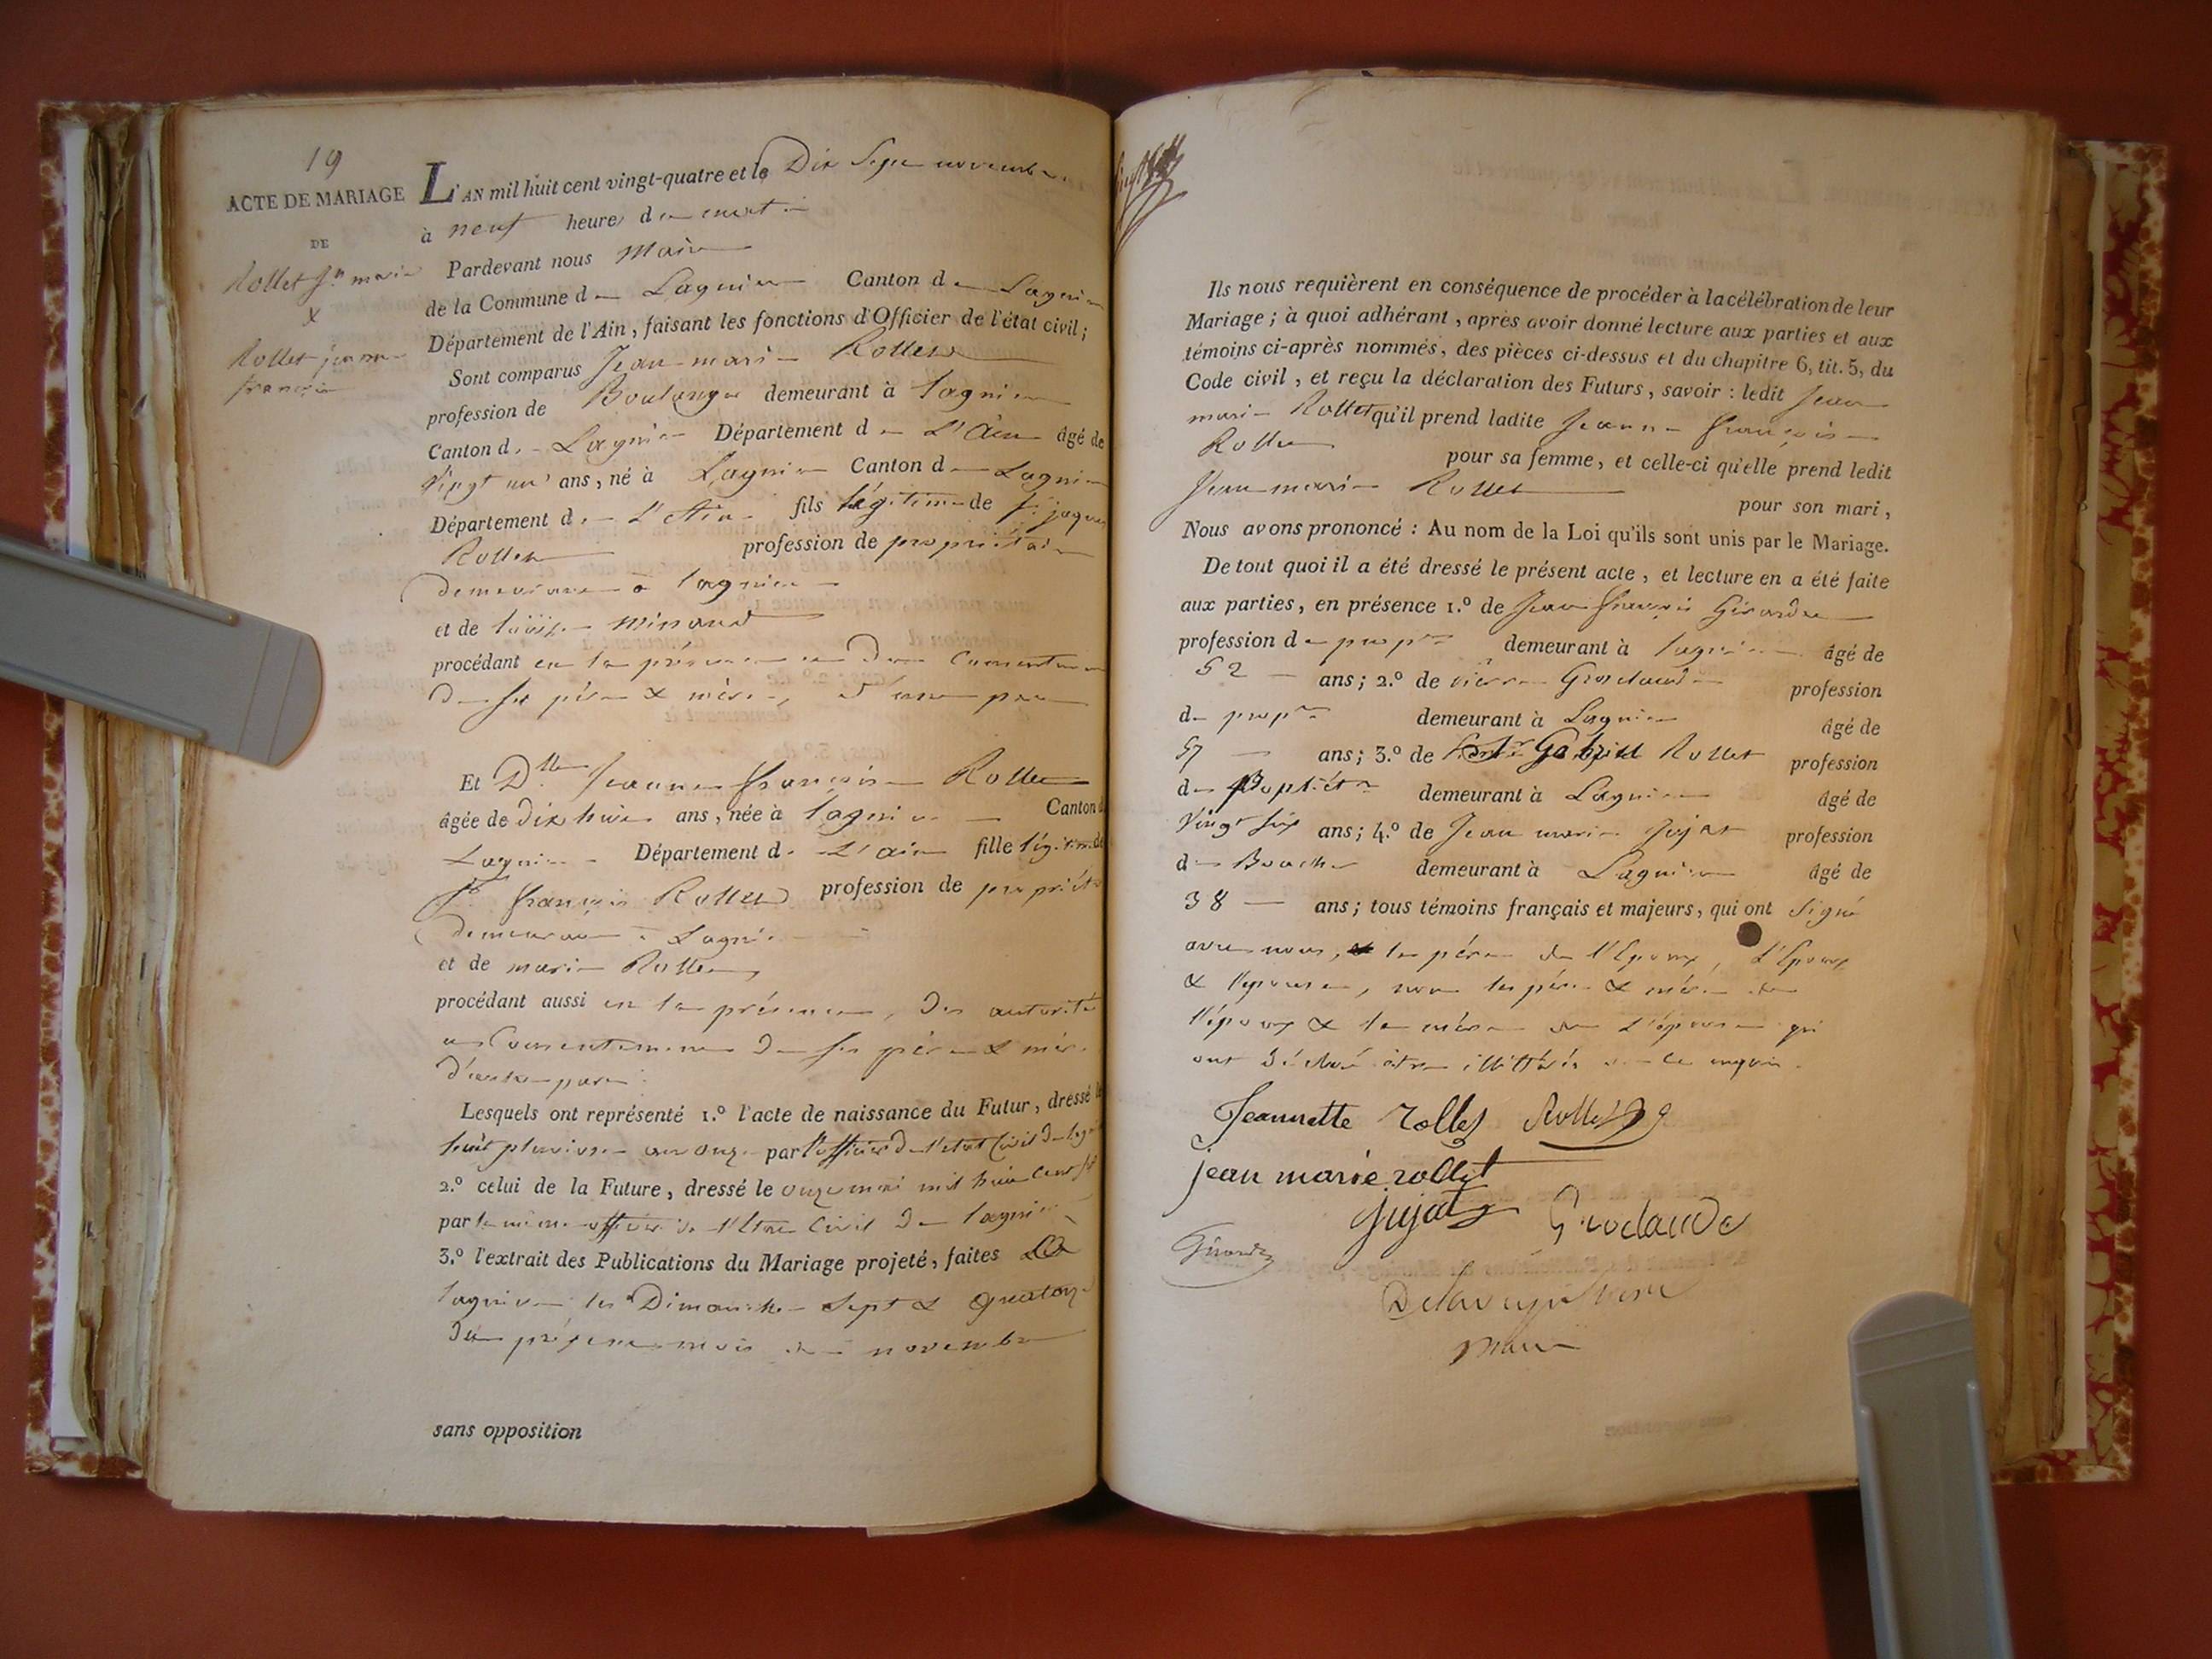 19
ACTE DE MARIAGE
DE
Rollet Jn marie
&
Rollet jeanne
françoise
L'AN mil huit cent vingt-quatre et le Dix Sept novembre
à neuf heures du matin
Pardevant nous Maire
de la Commune de Lagnieu Canton de Lagnieu
Département de l'Ain, faisant les fonctions d'Officier de l'état civil;
Sont comparus Jean marie Rollet
profession de Boulanger demeurant à Lagnieu
Canton de Lagnieu Département de L'Ain âgé de
Vingt un ans, né à Lagnieu Canton de Lagnieu
Département de L'Ain fils légitime de jaques
Rollet profession de propriétaire
demeurant à Lagnieu
et de
procédant en la présence et du Consentement
de ses père & mère, d'une part
Et Dlle Jeanne françoise Rollet
âgée de dix huit ans, née à Lagnieu Canton d
Lagnieu Département de L'ain fille légitime de
françois Rollet profession de propriét
demeurant à Lagnieu
et de marie Rollet
procédant aussi en la présence, des autorité
et Consentement de ses père & mère
d'autre part
Lesquels ont représenté 1.º l'acte de naissance du Futur, dressé le
huit pluviose an onze par l'officier de l'état Civil de Lagnieu
2.º celui de la Future, dressé le onze mai mil huit Cent
par le même officier de l'Etat Civil de Lagnieu
3.º l'extrait des Publications du Mariage projeté, faites
Lagnieu les Dimanche Sept & Quatorze
du présent mois de novembre
sans opposition
Ils nous requièrent en conséquence de procéder à la célébration de leur
Mariage; à quoi adhérant, après avoir donné lecture aux parties et aux
témoins ci-après nommés, des pièces ci-dessus et du chapitre 6, tit. 5, du
Code civil, et reçu la déclaration des Futurs, savoir: ledit Jean
marie Rollet qu'il prend ladite Jeanne françoise
Rollet pour sa femme, et celle-ci qu'elle prend ledit
Jean marie Rollet pour son mari,
Nous avons prononcé: Au nom de la Loi qu'ils sont unis par le Mariage.
De tout quoi il a été dressé le présent acte, et lecture en a été faite
aux parties, en présence 1.º de Jean françois
profession de propre demeurant à Lagnieu âgé de
52 ans; 2.º de pierre Grosclaude profession
de propre demeurant à Lagnieu âgé de
57 ans; 3.º de Gabriel Rollet profession
de Propriétre demeurant à Lagnieu âgé de
Vingt six ans; 4.º de Jean marie Jujat profession
de Boucher demeurant à Lagnieu âgé de
38 ans; tous témoins français et majeurs, qui ont Signé
avec nous, le père de l'Epoux, L'Epoux
& l'epouse, non les père & mère de
l'époux & la mère de L'épouse qui
ont déclaré être illittérés de ce enquis.
Jeannette rollet Rollet
jean marie rollet
jujat Grosclaude
Girardet
maire